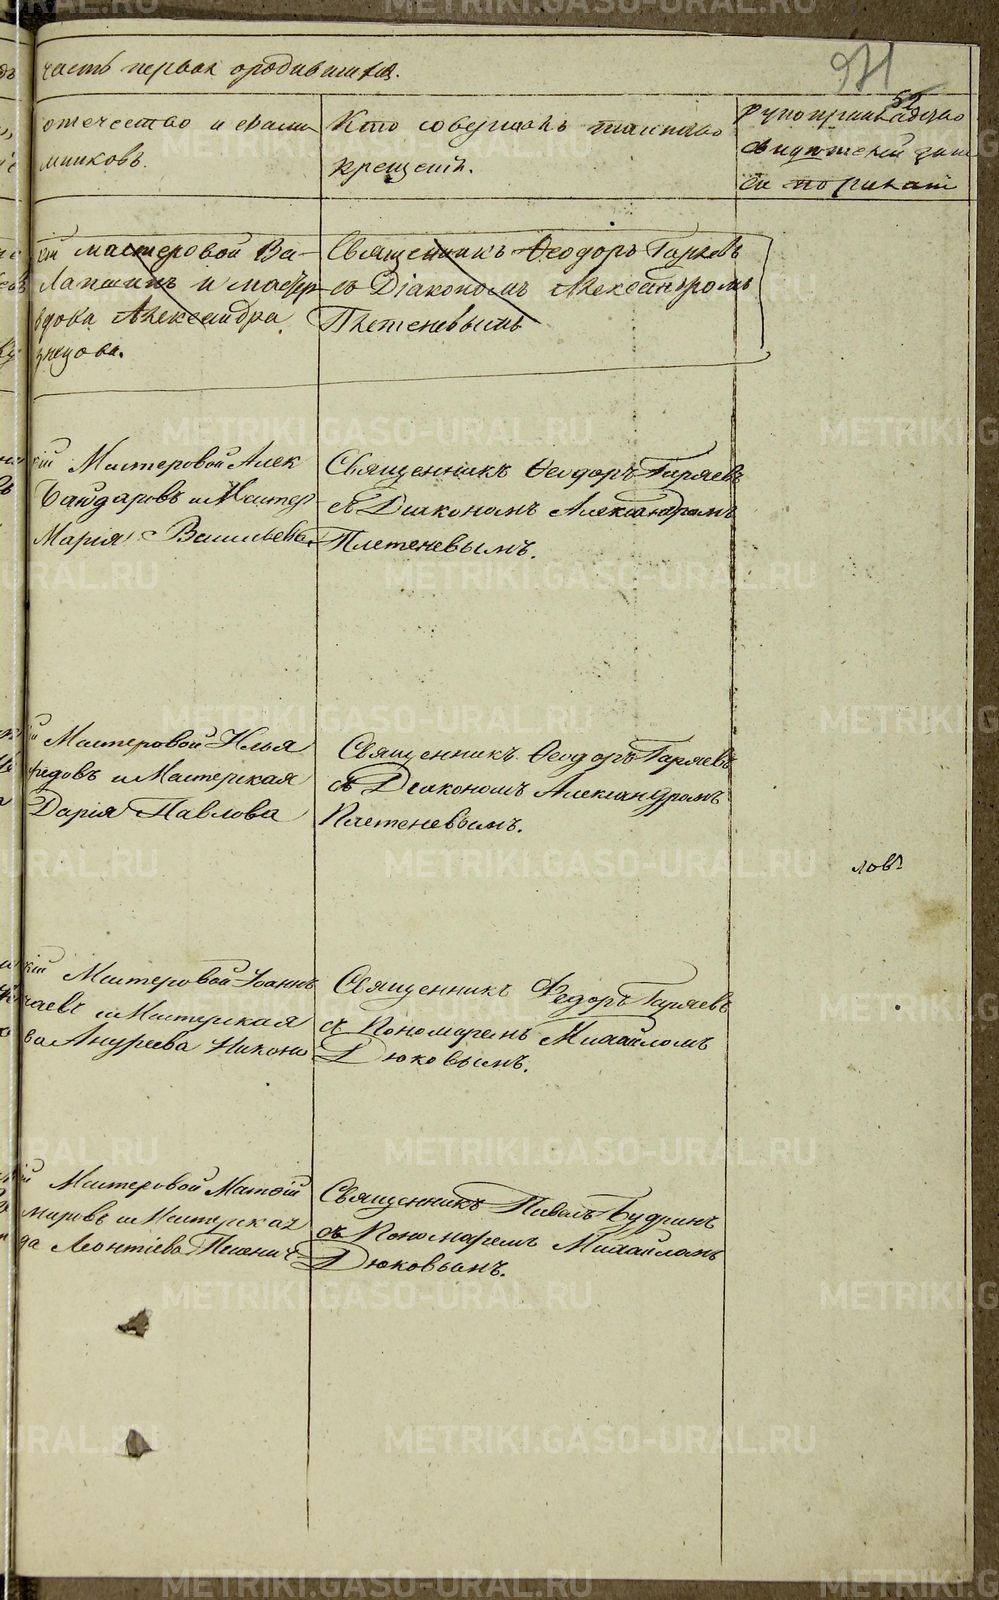 часть первая ородившихся.
971
52
отечество и фами
мниковъ.
Кто совершалъ таинство
крещенія.
рукоприкладство
свидѣтелей запи
си по
ій мастеровой Ва-
Лапшинъ и мастер
вдова Александра
знецова.
Священникъ Ѳеодоръ Гаряевъ
съ Діакономъ Александромъ
Плетеневымъ
кій Мастеровой Алек
Байдаровъ и Мастер
Марія Васильева.
Священникъ Ѳеодоръ Гаряевъ
съ Діакономъ Александромъ
Плетеневымъ.
ій Мастеровой Илья
редовъ и Мастерская
Дарія Павлова
Священникъ Ѳеодоръ Гаряевъ
съ Діакономъ Александромъ
Плетеневымъ.
ловъ
кій Мастеровой Іоаннъ
чаевъ и Мастерская
ва Андреева Иконо
Священникъ Ѳедоръ Гаряевъ
съ Пономаремъ Михаиломъ
Дюковымъ.
ій Мастеровой Матѳій
мировъ и Мастерская
да Леонтіева
Священникъ Павелъ Будринъ
съ Пономаремъ Михаиломъ
Дюковымъ.
METRIKI.GASO-URAL.RU